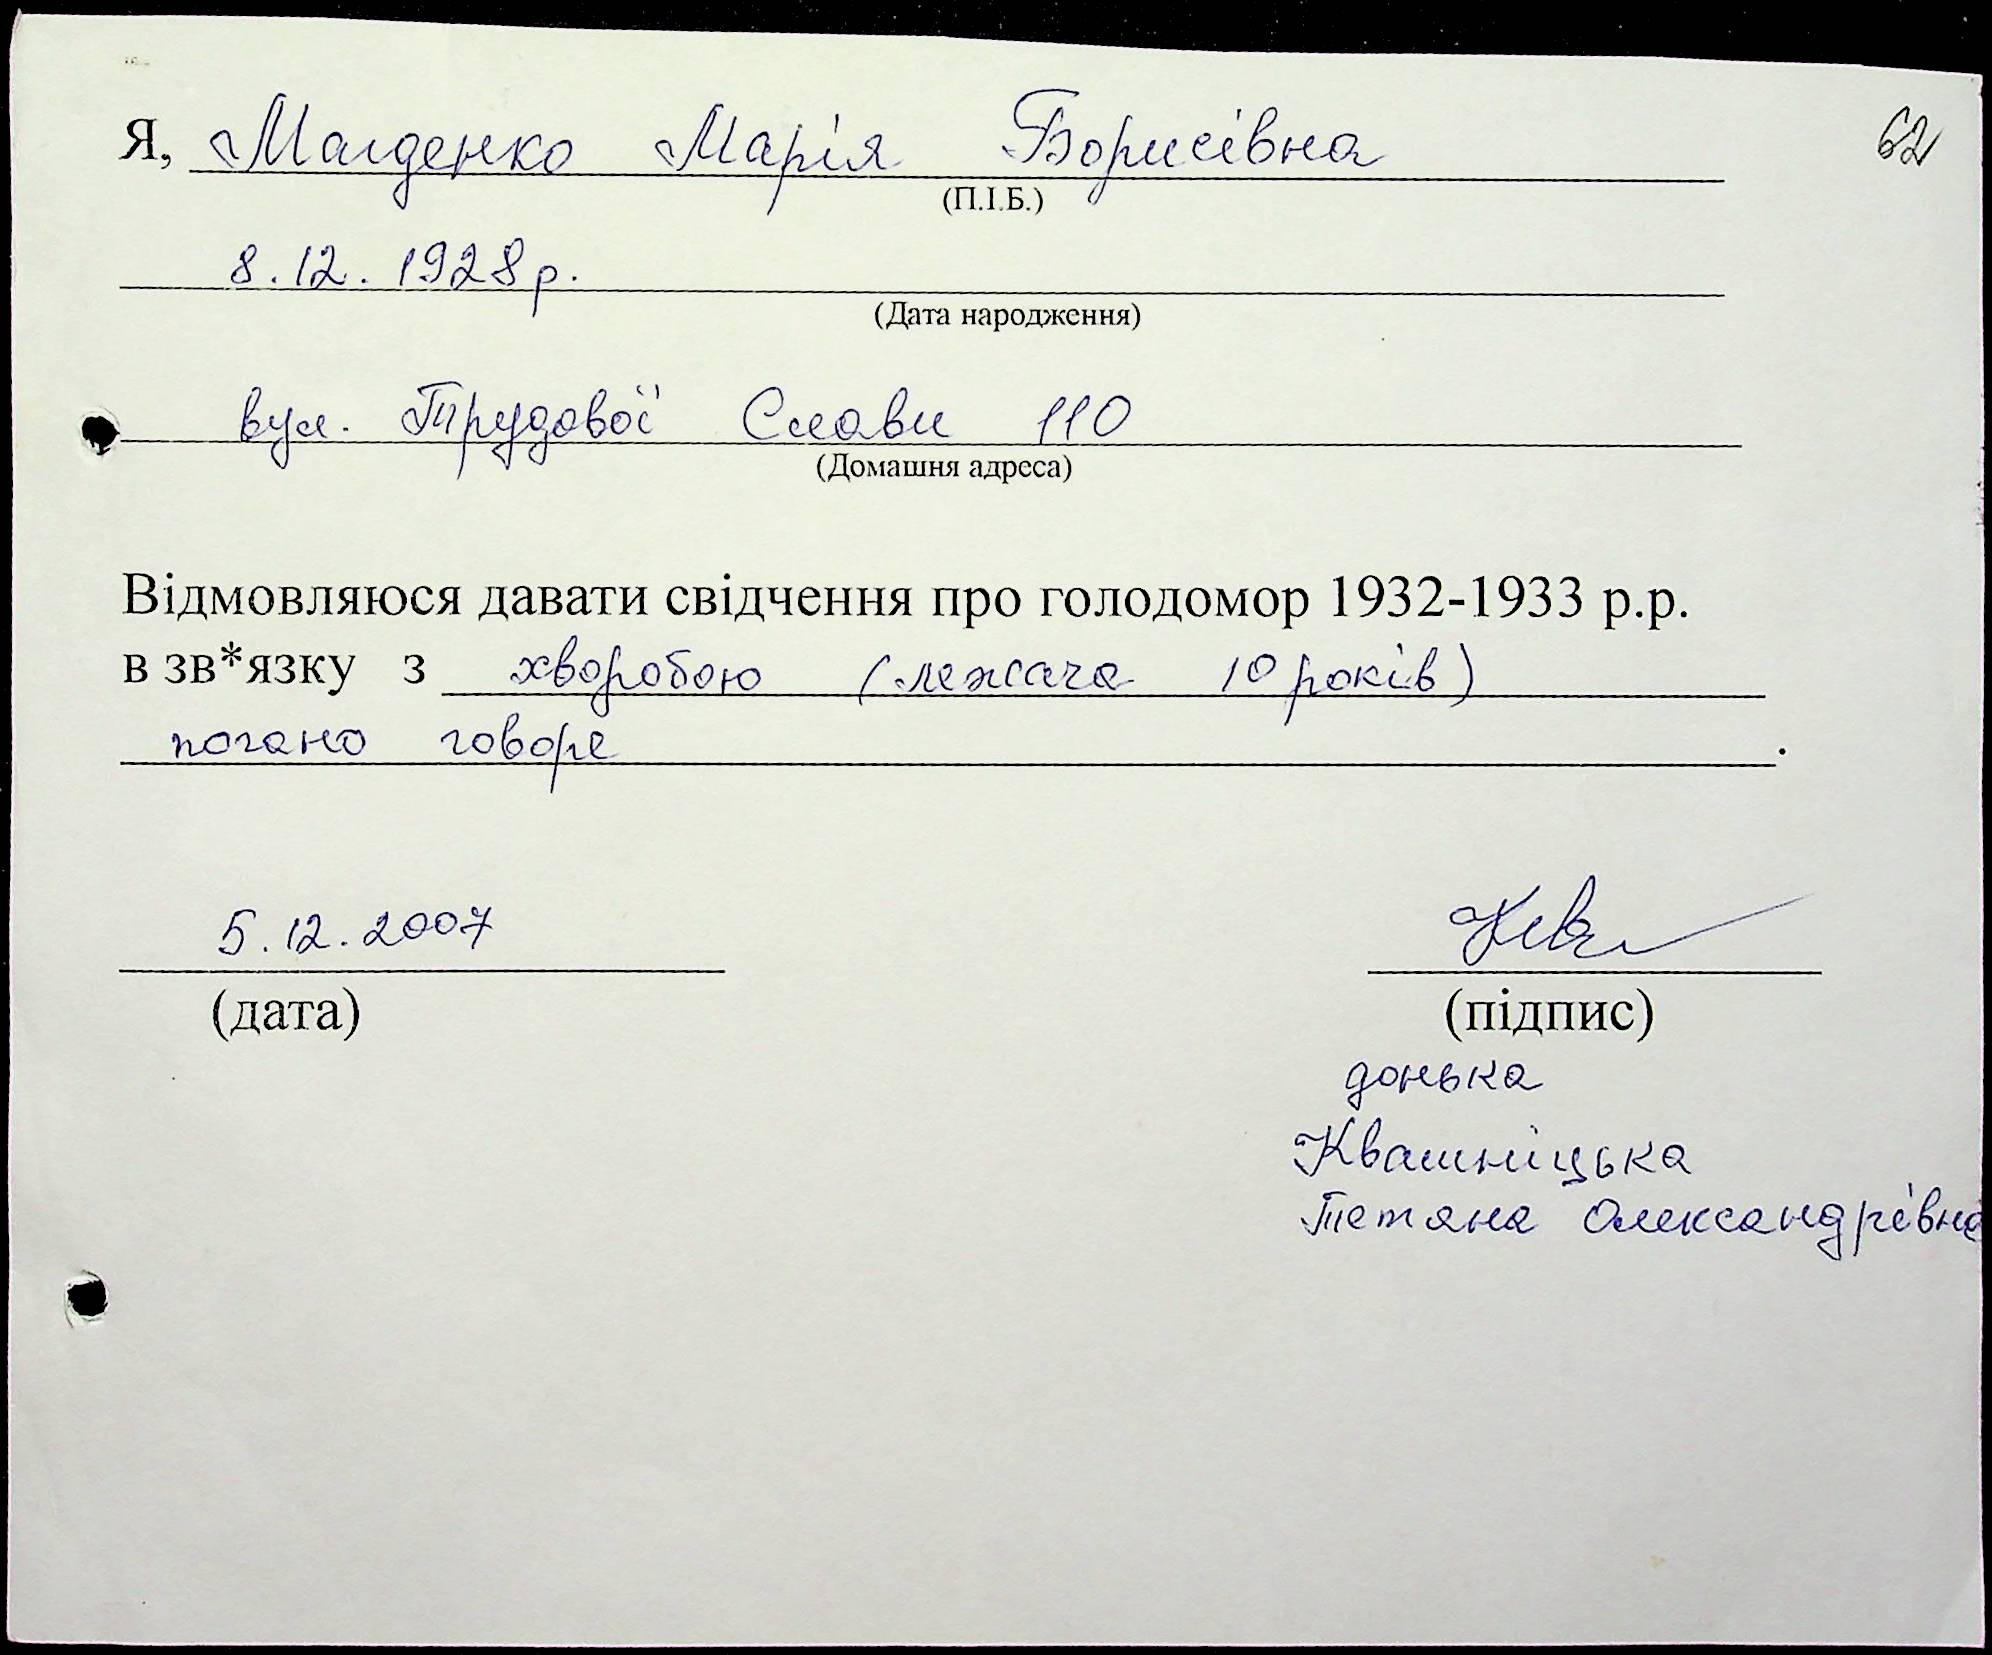 62
Я, Магденко Марія Борисівна
(П.І.Б.)
8.12.1928р.
(Дата народження)
вул. Трудової Слави 110
(Домашня адреса)
Відмовляюся давати свідчення про голодомор 1932-1933 р.р.
в зв*язку з хворобою (лежача 10 років)
погано говоре .
5.12.2007
(дата)
(підпис)
донька
Квашніцька
Тетяна Олександрівна